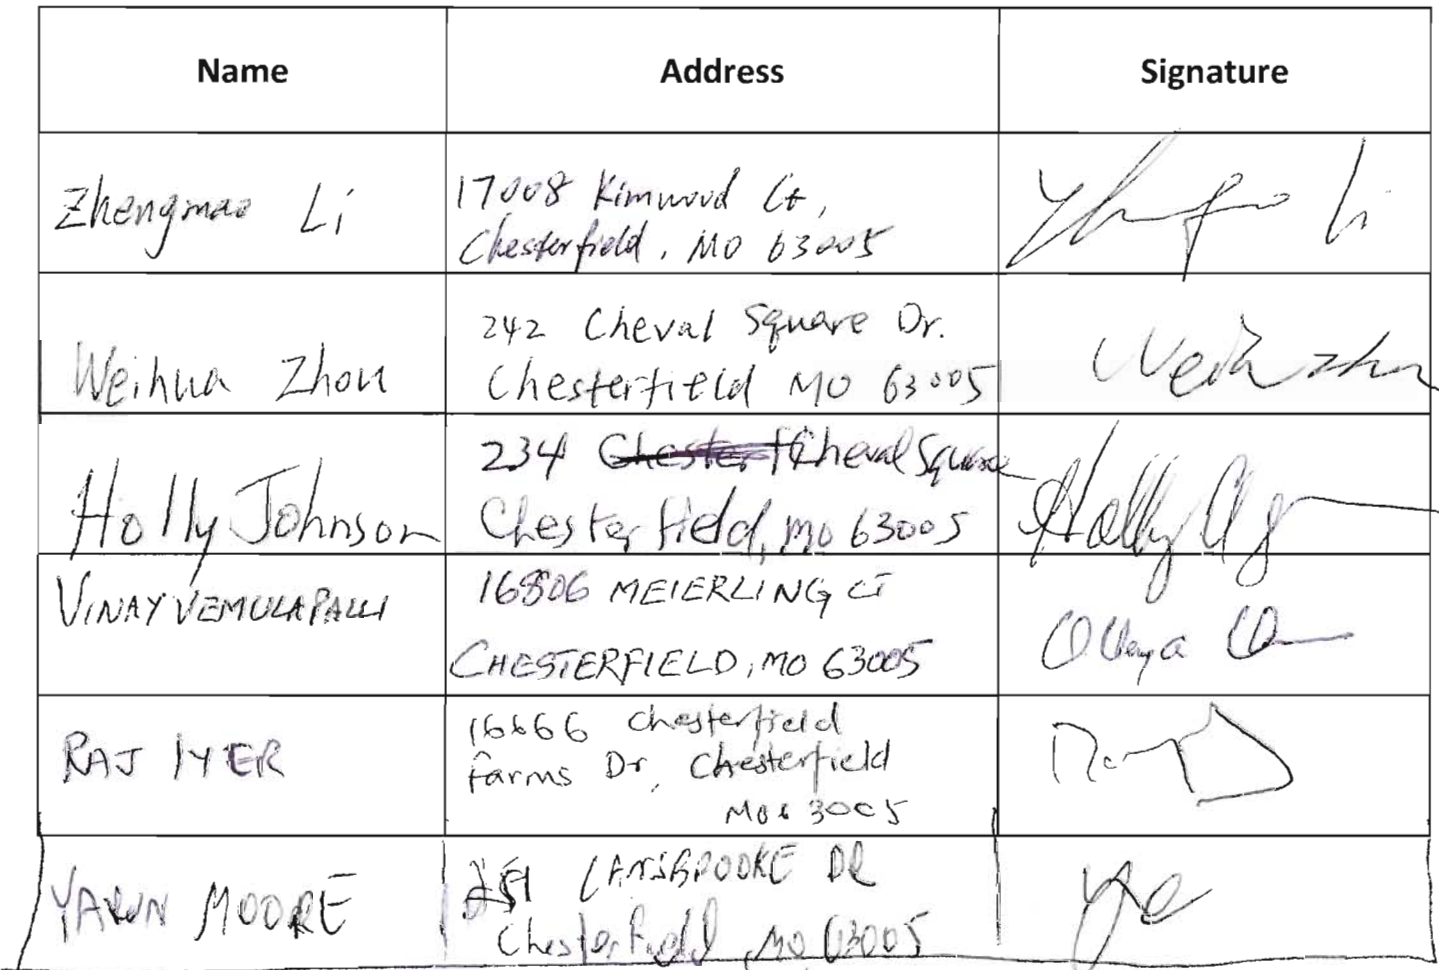 Name Address Signature
Zhengmao Li
17008 Kimwood Ct,
Chesterfield, MO 63005
Weihua Zhou
242 Cheval Square Dr.
Chesterfield MO 63005
Holly Johnson
234 Cheval Square
Chesterfield, MO 63005
Holly
VINAY VEMULAPALLI
16806 MEIERLING CT
CHESTERFIELD, MO 63005
RAJ IYER
16666 Chesterfield
Farms Dr, Chesterfield
MO 63005
MOORE
DR
Chesterfield MO 63005